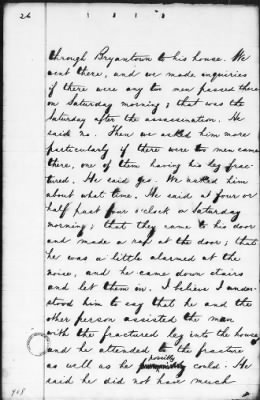 26
through Bryantown to his house. We
went there, and we made inquiries
if there were any two men passed there
on Saturday morning; that was the
Saturday after the assassination. He
said no. Then we asked him more
particularly if there were two men came
there, one of them having his leg frac-
tured. He said yes. We asked him
about what time. He said at four or
half past four o'clock on Saturday
morning; that they came to his door
and made a rap at the door; that
he was a little alarmed at the
noise, and he came down stairs
and let them in. I believe I under-
stood him to say that he and the
other person assisted the man
with the fractured leg into the house
and he attended to the fracture
possibly
as well as he could. He
said he did not have much